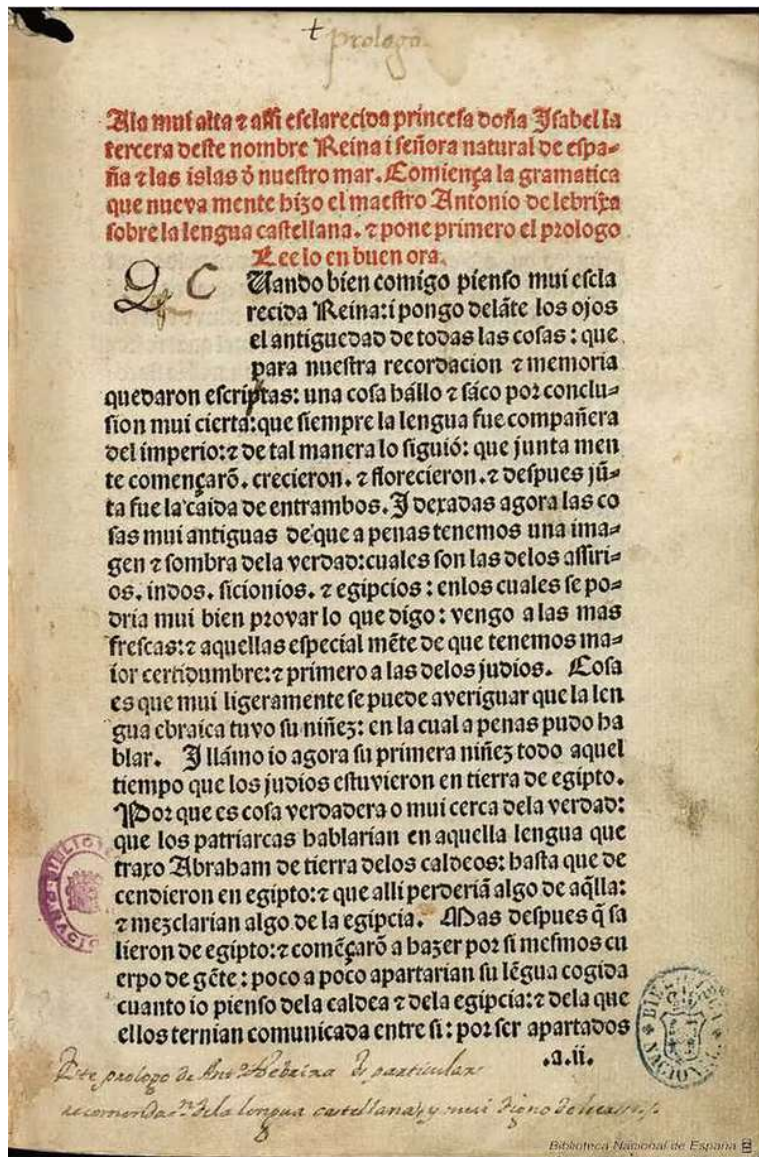 + prologo.
A la mui alta ⁊ assi esclarecida princesa doña Isabel la
tercera deste nombre Reina i señora natural de espa⸗
ña ⁊ las islas đ nuestro mar. Comiença la gramatica
que nueva mente hizo el maestro Antonio de lebrixa
sobre la lengua castellana. ⁊ pone primero el prologo
Lee lo en buen ora.
C
Uando bien comigo pienso mui escla
recida Reina: i pongo delãte los ojos
el antiguedad de todas las cosas: que
para nuestra recordacion ⁊ memoria
quedaron escriptas: una cosa hállo ⁊ sáco por conclu⸗
sion mui cierta: que siempre la lengua fue compañera
del imperio: ⁊ de tal manera lo siguió: que junta men
te començarõ. crecieron. ⁊ florecieron. ⁊ despues jũ⸗
ta fue la caida de entrambos. I dexadas agora las co
sas mui antiguas de que a penas tenemos una ima⸗
gen ⁊ sombra dela verdad: cuales son las delos assiri⸗
os. indos. sicionios. ⁊ egipcios: enlos cuales se po⸗
dria mui bien provar lo que digo: vengo a las mas
frescas: ⁊ aquellas especial mẽte de que tenemos ma⸗
ior certidumbre: ⁊ primero a las delos judios. Cosa
es que mui ligeramente se puede averiguar que la len
gua ebraica tuvo su niñez: en la cual a penas pudo ha
blar. I llámo io agora su primera niñez todo aquel
tiempo que los judios estuvieron en tierra de egipto.
Por que es cosa verdadera o mui cerca dela verdad:
que los patriarcas hablarian en aquella lengua que
traxo Abraham de tierra delos caldeos: hasta que de
cendieron en egipto: ⁊ que alli perderiã algo de aq̃lla:
⁊ mezclarian algo de la egipcia. Mas despues q̃ sa
lieron de egipto: ⁊ comẽçarõ a hazer por si mesmos cu
erpo de gẽte: poco a poco apartarian su lẽgua cogida
cuanto io pienso dela caldea ⁊ dela egipcia: ⁊ dela que
ellos ternian comunicada entre si: por ser apartados
.a.ii.
Este prologo de Antº Nebrixa es particular
recomendaⁿ. de la lengua castellana, y mui digno de
Biblioteca Nacional de España